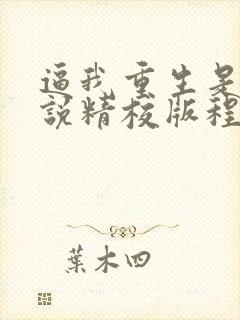 逼我重生是
说精校版程
葉木四